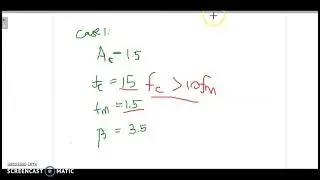 Case 1:
Ac = 1.5
fc = 15 fc > 10fm
fm = 1.5
β = 3.5
RECORDED WITH
SCREENCAST-O-MATIC